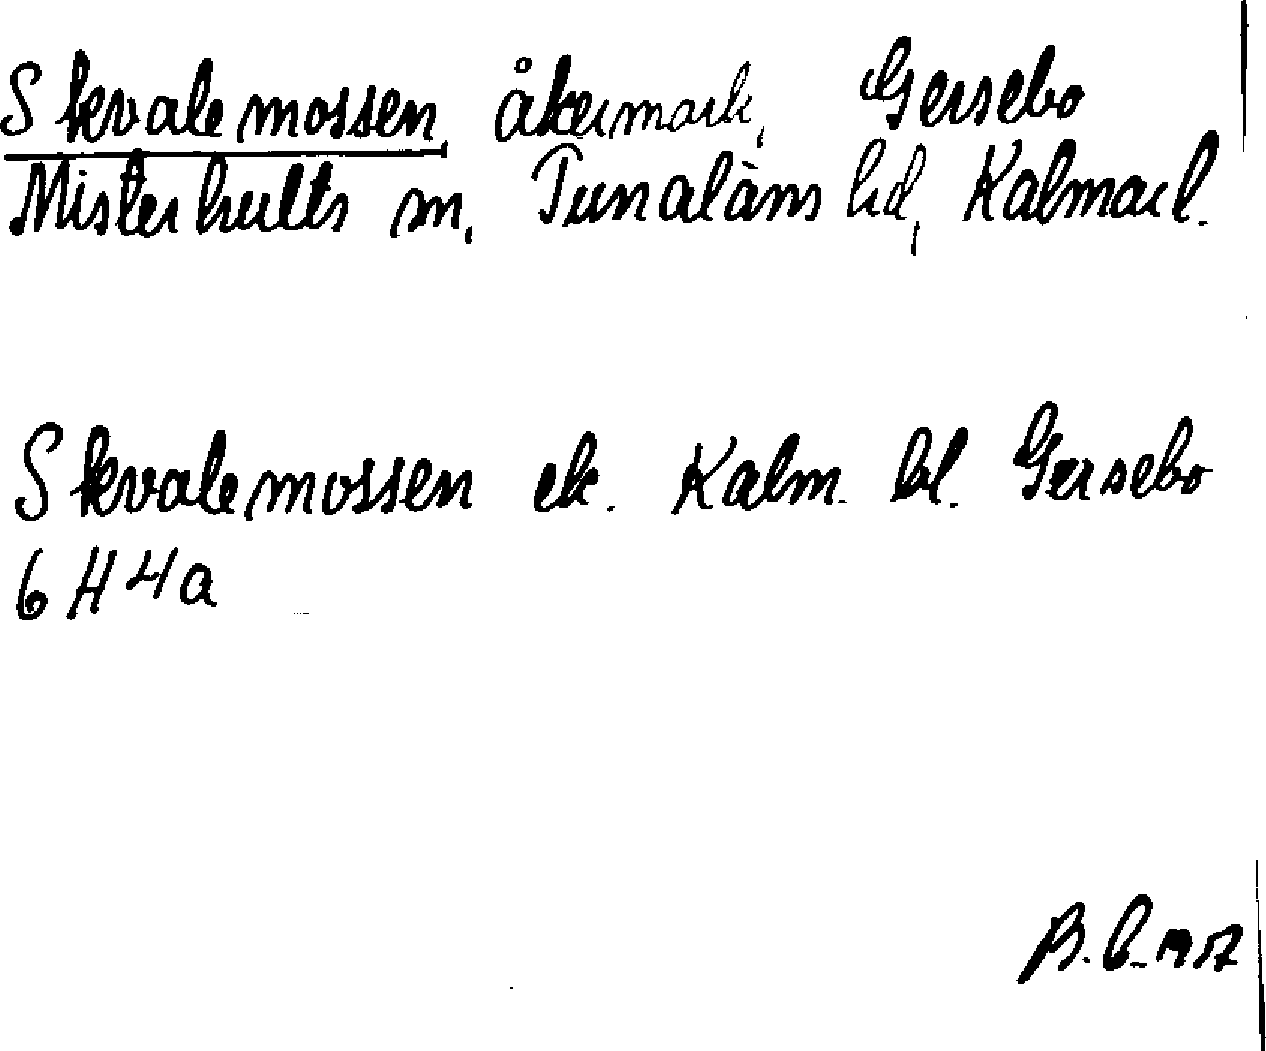 Skvalemossen, åkermark, Gersebo
Misterhults sn, Tunaläns hd, Kalmar l.
Skvalemossen ek. Kalm. bl. Gersebo
6 H 4a